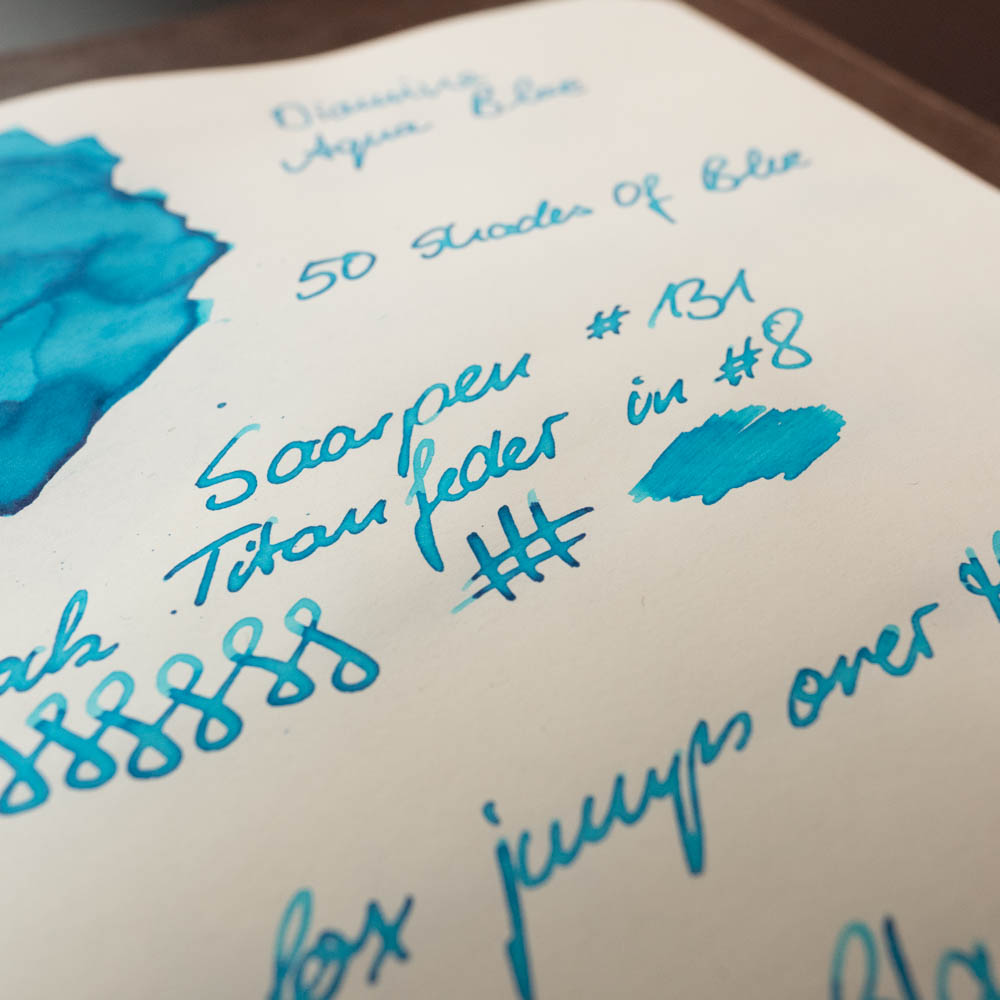 Diamine
Aqua Blue
50 Shades Of Blue
Saarpen #131
Titanfeder in #8
fox jumps over